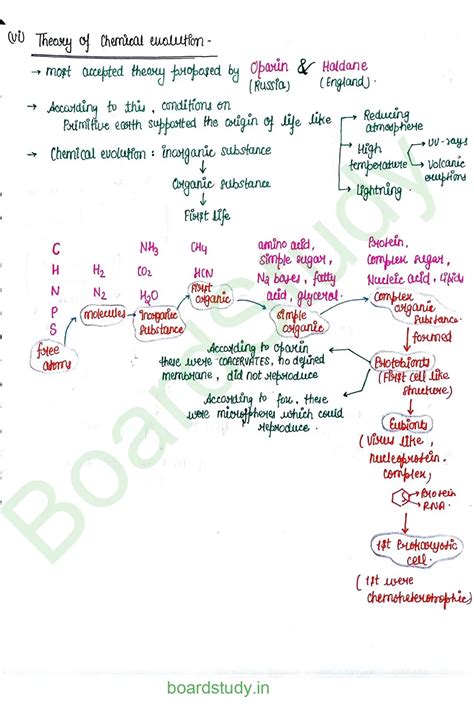 (vi) Theory of Chemical evolution -
→ most accepted theory proposed by Oparin & Haldane
(Russia) (England).
→ According to this, conditions on
Primitive earth supported the origin of life like
→ Reducing
atmosphere
→ High
temperature
→ UV-rays
→ Volcanic
eruptions
→ Lightning.
→ Chemical evolution : inorganic substance
↓
Organic substance
↓
First life
C
H
N
P
S
free
atoms
H2
N2
molecules
NH3
CO2
H2O
inorganic
substance
CH4
HCN
First
organic
amino acid,
simple sugar,
N2 bases, fatty
acid, glycerol.
simple
organic
Protein,
complex sugar,
Nucleic acid, lipids
complex
organic
substance
formed
According to Oparin
there were COACERVATES, no defined
membrane, did not reproduce
According to fox, there
were microspheres which could
reproduce.
Protobionts
(First cell like
structure)
Eubionts
(Virus like,
nucleoprotein
complex)
→ Protein
→ RNA.
1st Prokaryotic
cell.
(1st were
chemoheterotrophic)
Boardstudy
boardstudy.in